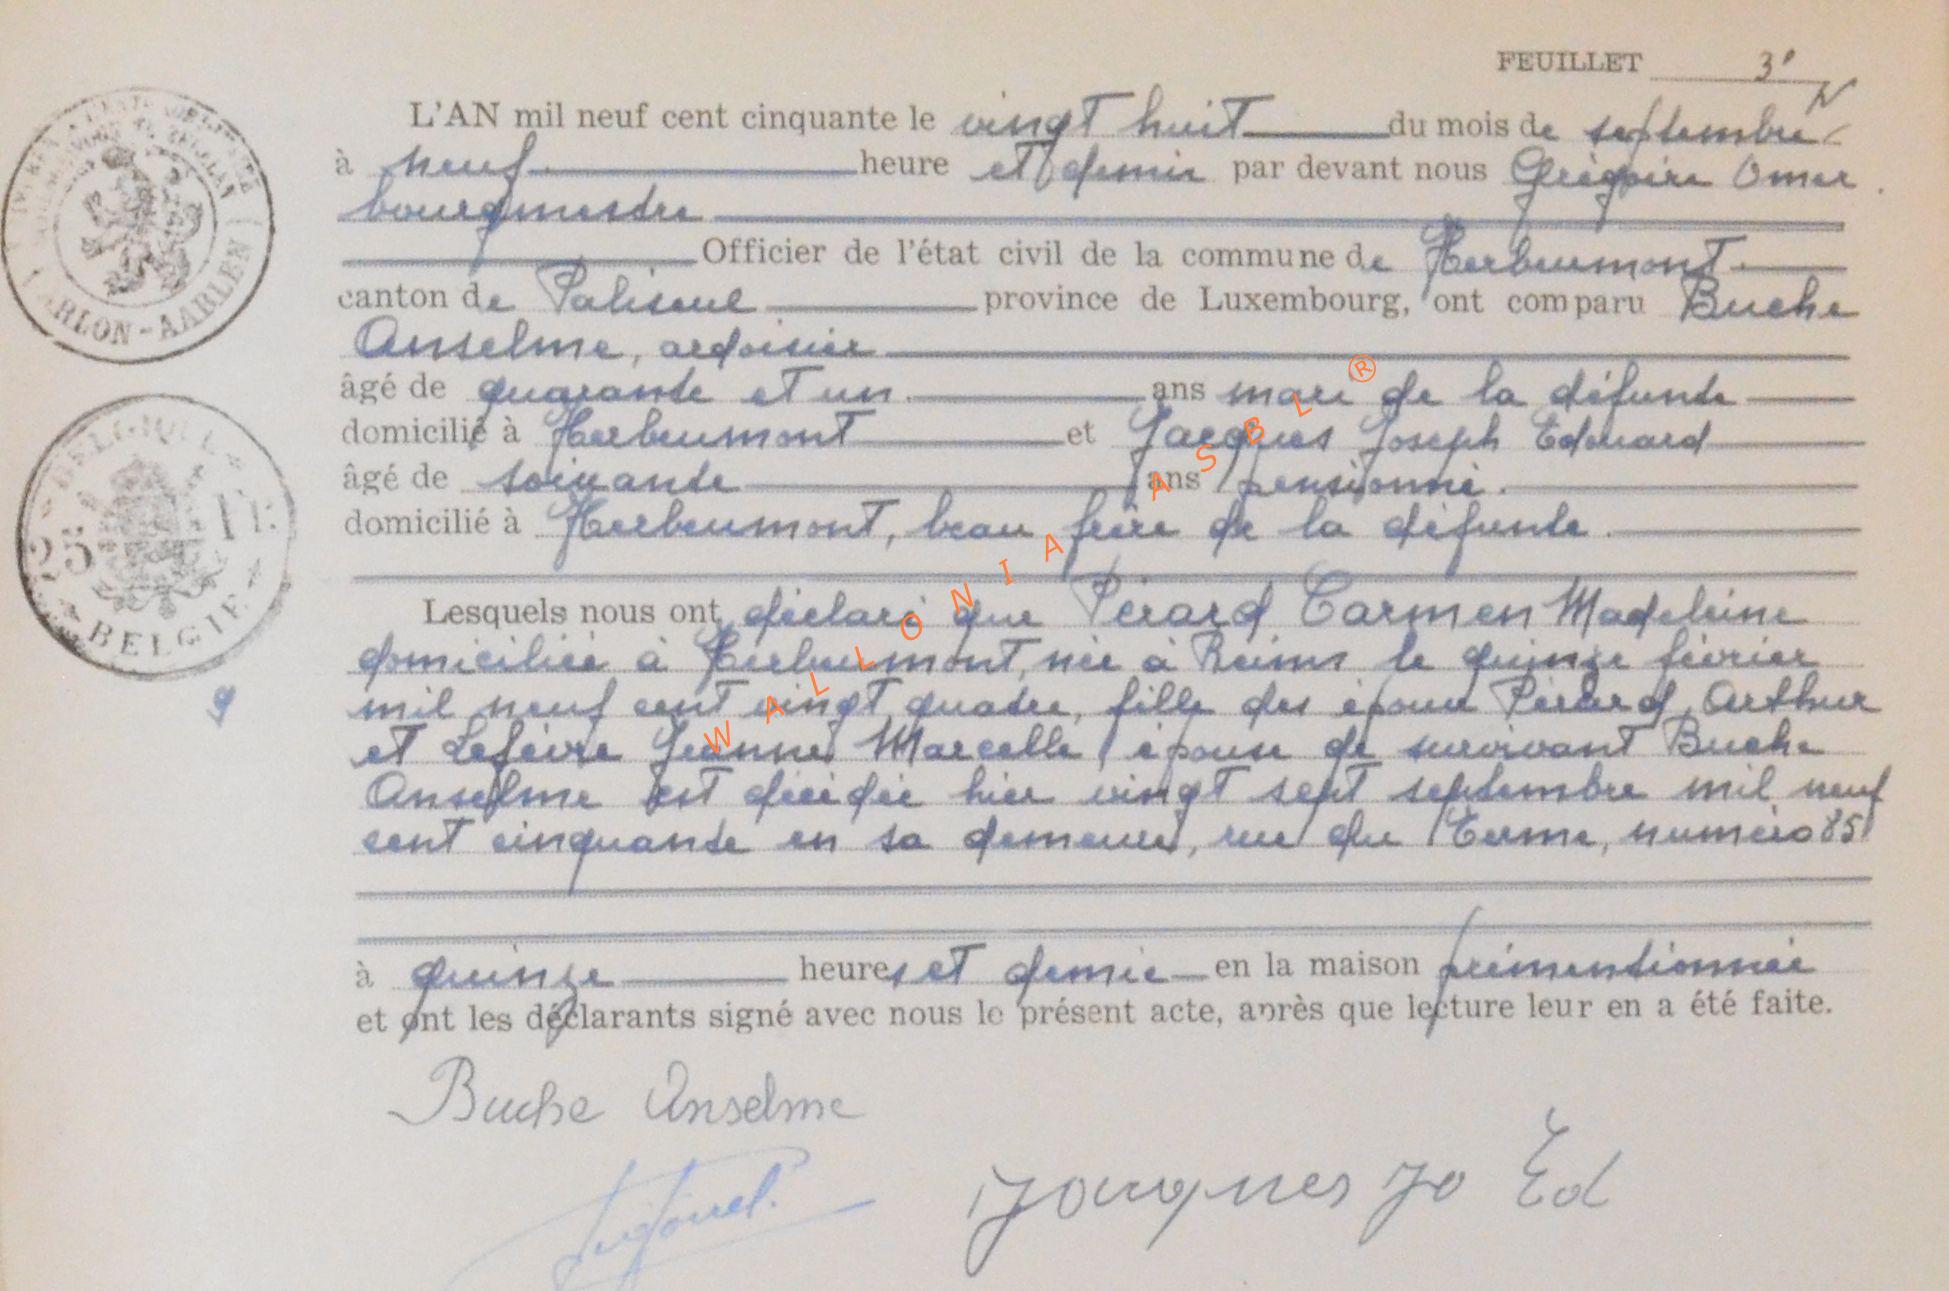 FEUILLET 3'
N
L'AN mil neuf cent cinquante le vingt huit du mois de septembre
à neuf heure et demie par devant nous Grégoire Omer
bourgmestre
Officier de l'état civil de la commune de Herbeumont
canton de Paliseul province de Luxembourg, ont comparu Buche
Anselme, ardoisier
âgé de quarante et un ans mari de la défunte
domicilié à Herbeumont et Jacques Joseph Edouard
âgé de soixante ans pensionné.
domicilié à Herbeumont, beau frère de la défunte.
Lesquels nous ont déclaré que Pérard Carmen Madeleine
domiciliée à Herbeumont, née à Reims le quinze février
mil neuf cent vingt quatre, fille des époux Pérard, Arthur
et Lefèvre Jeanne Marcelle, épouse de survivant Buche
Anselme est décédée hier vingt sept septembre mil neuf
cent cinquante en sa demeure, rue du Terme, numéro 85
à quinze heures et demie en la maison prémentionnée
et ont les déclarants signé avec nous le présent acte, après que lecture leur en a été faite.
Buche Anselme
Jacques Jo Ed
ARLON-AARLEN
BELGIQUE
25 FR
BELGIE
9
WALLONIA ASBL ®